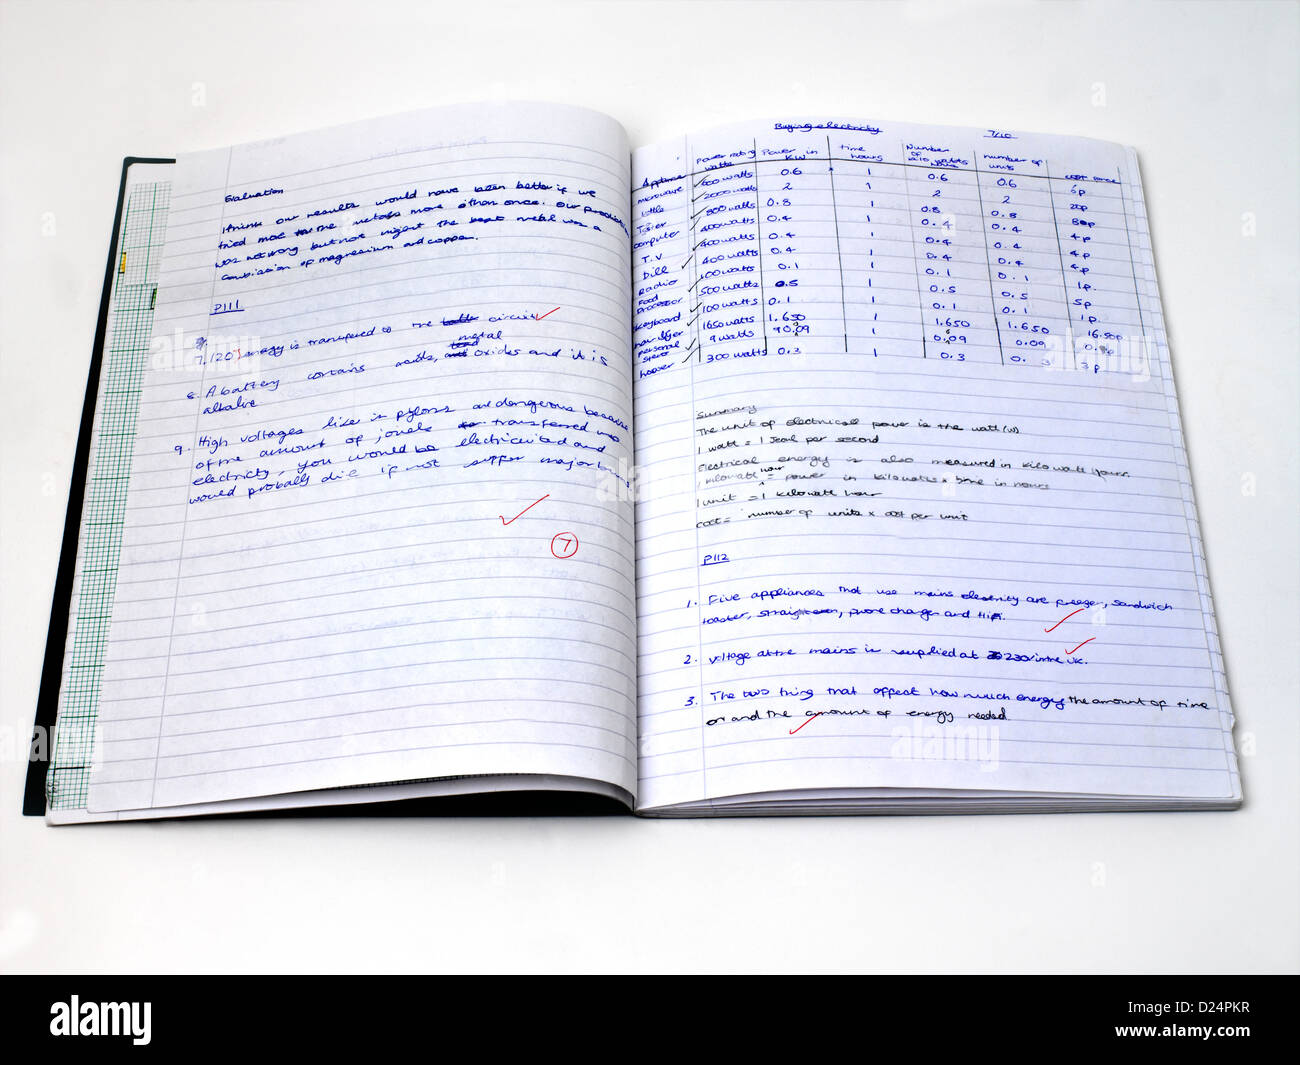 Evaluation
I think our results would have been better if we
tried more the metals more often once. Our prediction
was not wrong but not right the best metal was a
combination of magnesium and copper.
P111
7. 120J energy is transferred to the circuit
metal
8. A battery contains acids, oxides and it is
alkaline
9. High voltages like in pylons are dangerous because
of the amount of joules transferred into
electricity, you would be electricuited and
would probally die if not suffer major burns
7
Buying electricity 7/10
Appliance Power rating watts Power in KW time hours Number of kilo watts hours number of units cost
microwave 600 watts 0.6 1 0.6 0.6 6p
kettle 2000 watts 2 1 2 2 20p
800 watts 0.8 1 0.8 0.8 80p
computer 400 watts 0.4 1 0.4 0.4 4p
T.V 400 watts 0.4 1 0.4 0.4 4p
Drill 400 watts 0.4
Radio 100 watts 0.1 1 0.1 0.1 1p
Food Processor 500 watts 0.5 1 0.5 0.5 5p
Keyboard 100 watts 0.1 1 0.1 0.1 1p
1650 watts 1.650 1 1.650 1.650 16.50p
personal stereo 9 watts 0.09 1 0.09 0.09
hoover 300 watts 0.3 1 0.3 0.3 3p
Summary
The unit of electrical power is the watt (w)
1 watt = 1 Joal per second
Electrical energy is also measured in kilowatt hours.
1 kilowatt hour = power in kilowatts x time in hours
1 unit = 1 kilowatt hour
cost = number of units x cost per unit
P112
1. Five appliances that use mains electricity are freezer, sandwich
toaster, straightner, phone charger and Hifi.
2. Voltage at the mains is supplied at 230v in the UK.
3. The two thing that affect how much energy the amount of time
on and the amount of energy needed.
alamy
Image ID: D24PKR
www.alamy.com